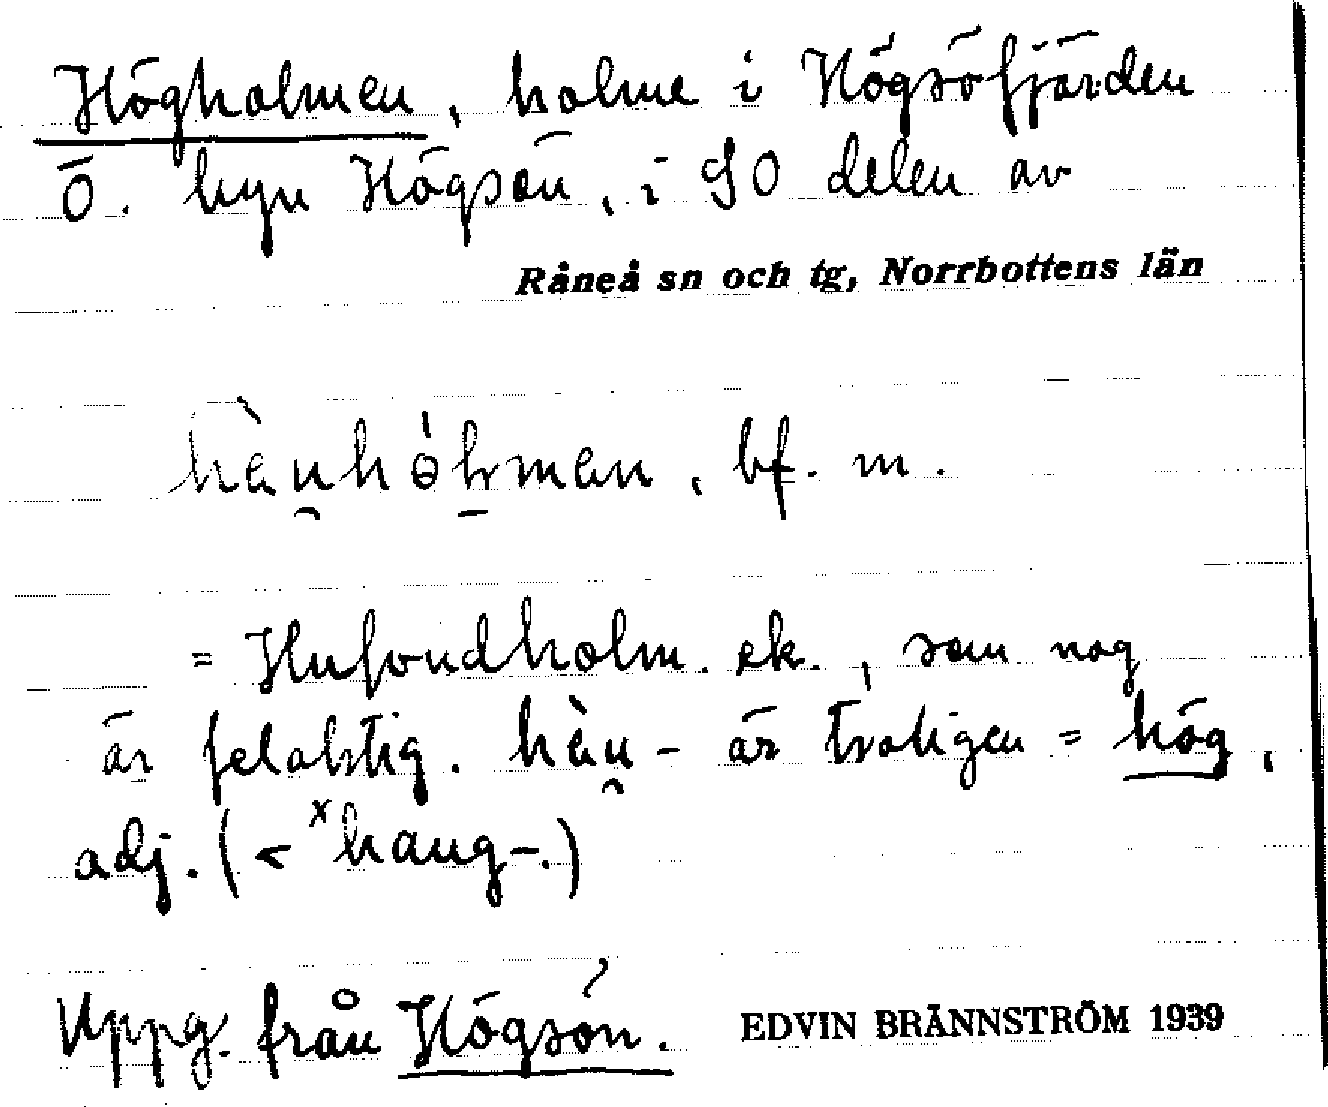 Högholmen, holme i Högsöfjärden
Ö. byn Högsön, i SO delen av
Råneå sn och tg, Norrbottens län
bf. m.
= Hufvudholm. ek., som nog
är felaktig. hàu̯- är troligen = hög,
adj. (< ˣhaug-.)
Uppg. från Högsön.
EDVIN BRÄNNSTRÖM 1939